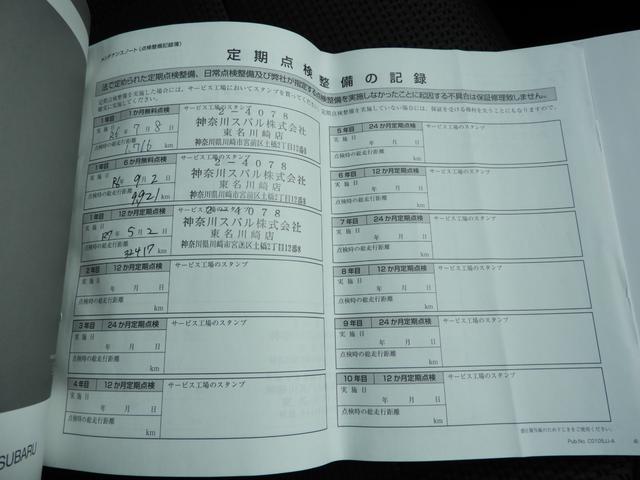 メンテナンスノート(点検整備記録簿)
定期点検整備の記録
法で定められた定期点検整備、日常点検整備及び弊社が指定する点検整備を実施しなかったことに起因する不具合は保証修理致しません。
1年目 1か月無料点検 サービス工場のスタンプ
実施日 R6年 7月 8日
点検時の総走行距離
1,716 km
2-4078
神奈川スバル株式会社
東名川崎店
神奈川県川崎市宮前区土橋2丁目12番8
1年目 6か月無料点検 サービス工場のスタンプ
実施日 R6年 9月 2日
点検時の総走行距離
9,921 km
2-4078
神奈川スバル株式会社
東名川崎店
神奈川県川崎市宮前区土橋2丁目12番8
1年目 12か月定期点検
実施日 R7年 5月 2日
点検時の総走行距離
32417 km
2-4078
神奈川スバル株式会社
東名川崎店
神奈川県川崎市宮前区土橋2丁目12番8
2年目 12か月定期点検 サービス工場のスタンプ
実施日 年 月 日
点検時の総走行距離
km
3年目 24か月定期点検 サービス工場のスタンプ
実施日 年 月 日
点検時の総走行距離
km
4年目 12か月定期点検 サービス工場のスタンプ
実施日 年 月 日
点検時の総走行距離
km
5年目 24か月定期点検 サービス工場のスタンプ
実施日 年 月 日
点検時の総走行距離
km
6年目 12か月定期点検 サービス工場のスタンプ
実施日 年 月 日
点検時の総走行距離
km
7年目 24か月定期点検 サービス工場のスタンプ
実施日 年 月 日
点検時の総走行距離
km
8年目 12か月定期点検 サービス工場のスタンプ
実施日 年 月 日
点検時の総走行距離
km
9年目 24か月定期点検 サービス工場のスタンプ
実施日 年 月 日
点検時の総走行距離
km
10年目 12か月定期点検 サービス工場のスタンプ
実施日 年 月 日
点検時の総走行距離
km
Pub.No. C0105JJ-A
SUBARU